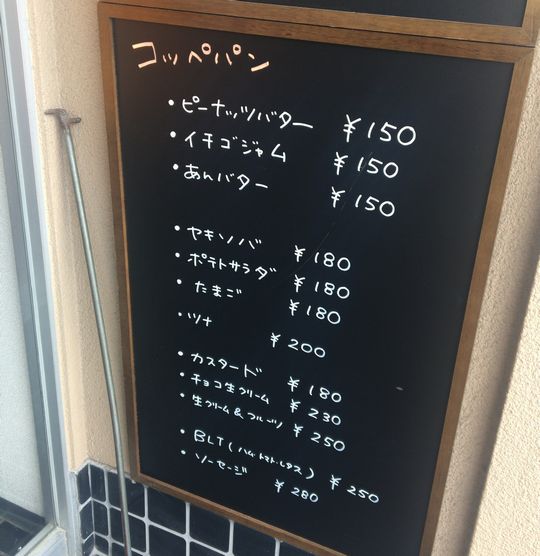 コッペパン
・ピーナッツバター ¥150
・イチゴジャム ¥150
・あんバター ¥150
・ヤキソバ ¥180
・ポテトサラダ ¥180
・たまご ¥180
・ツナ ¥200
・カスタード ¥180
・チョコ生クリーム ¥230
・生クリーム&フルーツ ¥250
・BLT(ハム・トマト・レタス) ¥250
・ソーセージ ¥280